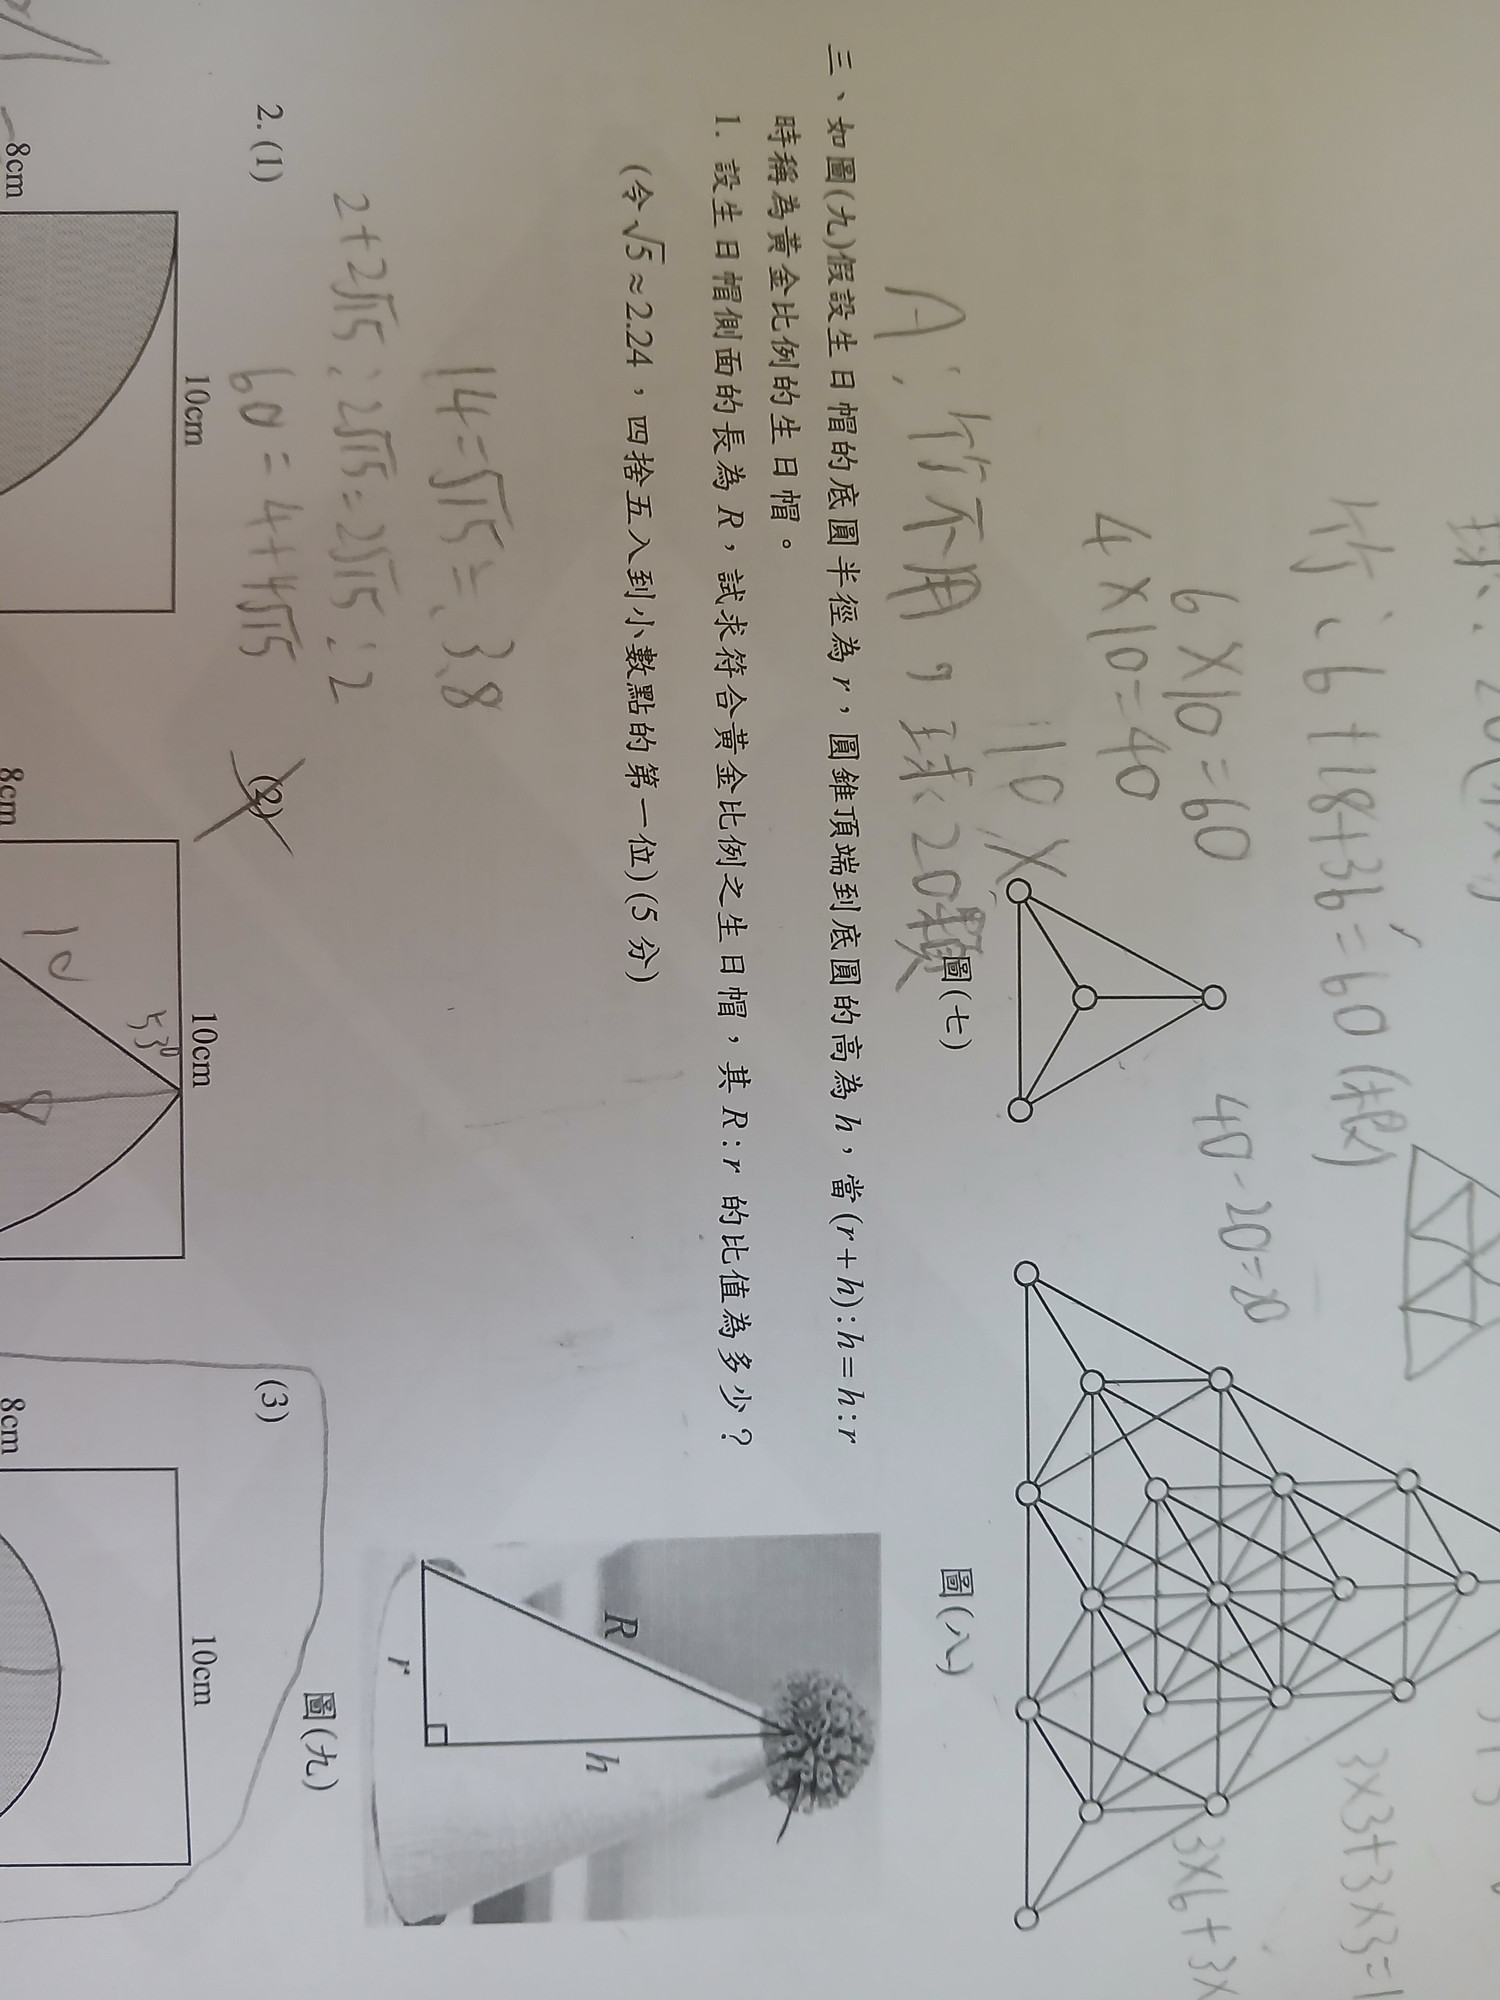 竹、6+18+36=60(根)
6×10=60
4×10=40
40-20=20
3×3+3×3=1
3×6+3×
110
A:竹不用,球、20顆
圖(七)
圖(八)
三、如圖(九)假設生日帽的底圓半徑為r,圓錐頂端到底圓的高為h,當(r+h):h=h:r
時稱為黃金比例的生日帽。
1. 設生日帽側面的長為R,試求符合黃金比例之生日帽,其R:r的比值為多少?
(令√5≈2.24,四捨五入到小數點的第一位)(5分)
R
h
r
圖(九)
14=√15=3.8
2+2√15:2√15=2√15:2
60=4+4√15
2.(1)
(2)
(3)
10cm
10cm
10cm
8cm
8cm
8cm
53°
10
8